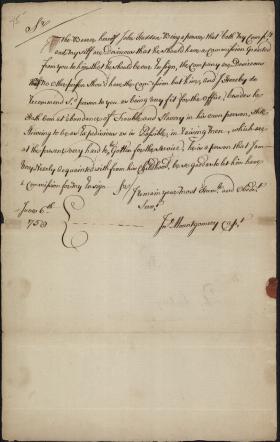 Sr
The Bearer hereof John Hudson Being a person that both my Comp.ny
and my self are Desirous that he should have a Commission Granted
from you to him that he should be our Ensign, the Company any Desirous
that no other person Shou'd have the Com.n but him, and I Hereby do
recommend Sd person to you as being very fit for the office, besides he
hath been at abundance of Trouble and Slavery in his own person, still
Striving to be as Expeditious as is Possible, in Raising men, which are
at the present very hard to be Gotten for the Service, he is a person that I am
very Nearly Acquainted with from his Childhood, be so good as to let him have
a Commission for my Ensign Sr I remain your most Humle and Obedt
Servt
June 6th
1759
Jno Mountgomery Capt